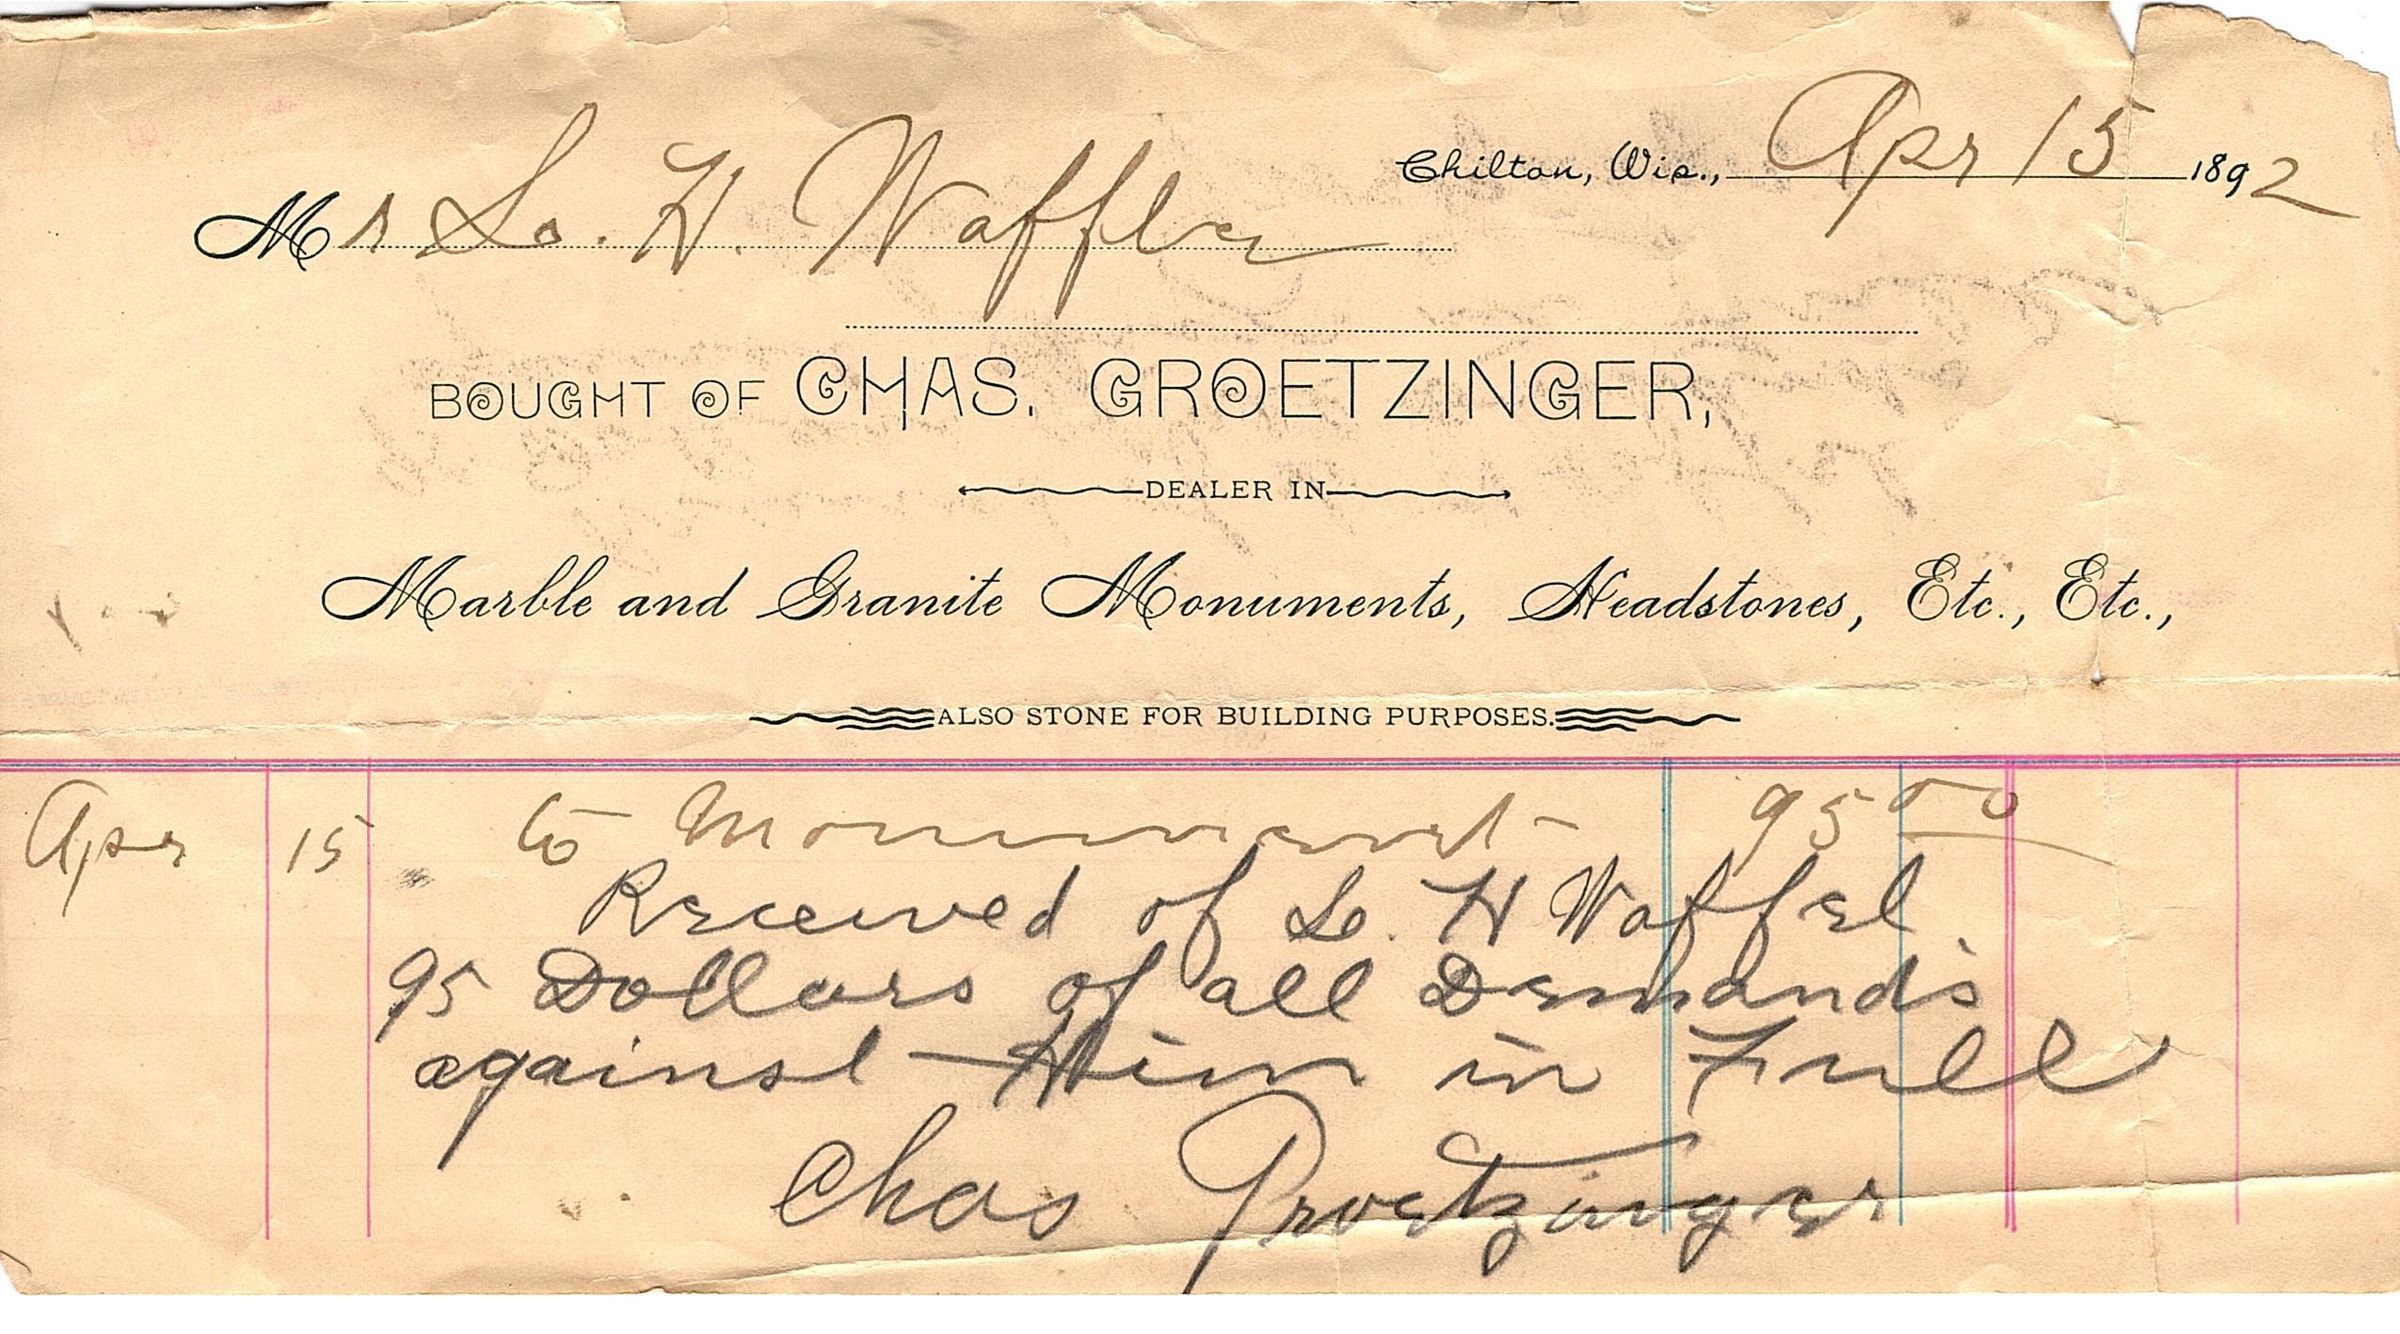 Chilton, Wis., Apr 15 1892
Mr Lo. H. Waffler
BOUGHT OF CHAS. GROETZINGER,
DEALER IN
Marble and Granite Monuments, Headstones, Etc., Etc.,
ALSO STONE FOR BUILDING PURPOSES.
Apr 15 to Monument 95 00
Received of Lo. H Waffel
95 Dollars of all Demands
against Him in Full
Chas Groetzinger